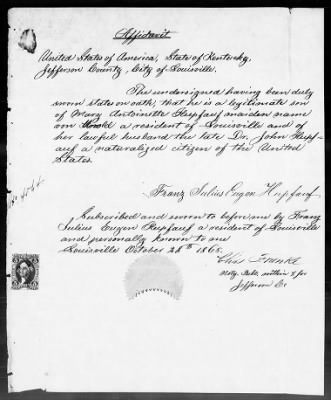 Affidavit
United States of America, State of Kentucky,
Jefferson County, City of Louisville.
The undersigned having been duly
sworn states on oath, that he is a legitimate son
of Mary Antoinette Hupfauf maiden name
von a resident of Louisville and of
her lawful husband the late Dr. John Hupf-
auf a naturalized citizen of the United
States.
Franz Julius Eugen Hupfauf
Subscribed and sworn to before me by Franz
Julius Eugen Hupfauf a resident of Louisville
and personally known to me
Louisville October 24th 1865.
Chas
Noty. Pub. within & for
Jefferson Co